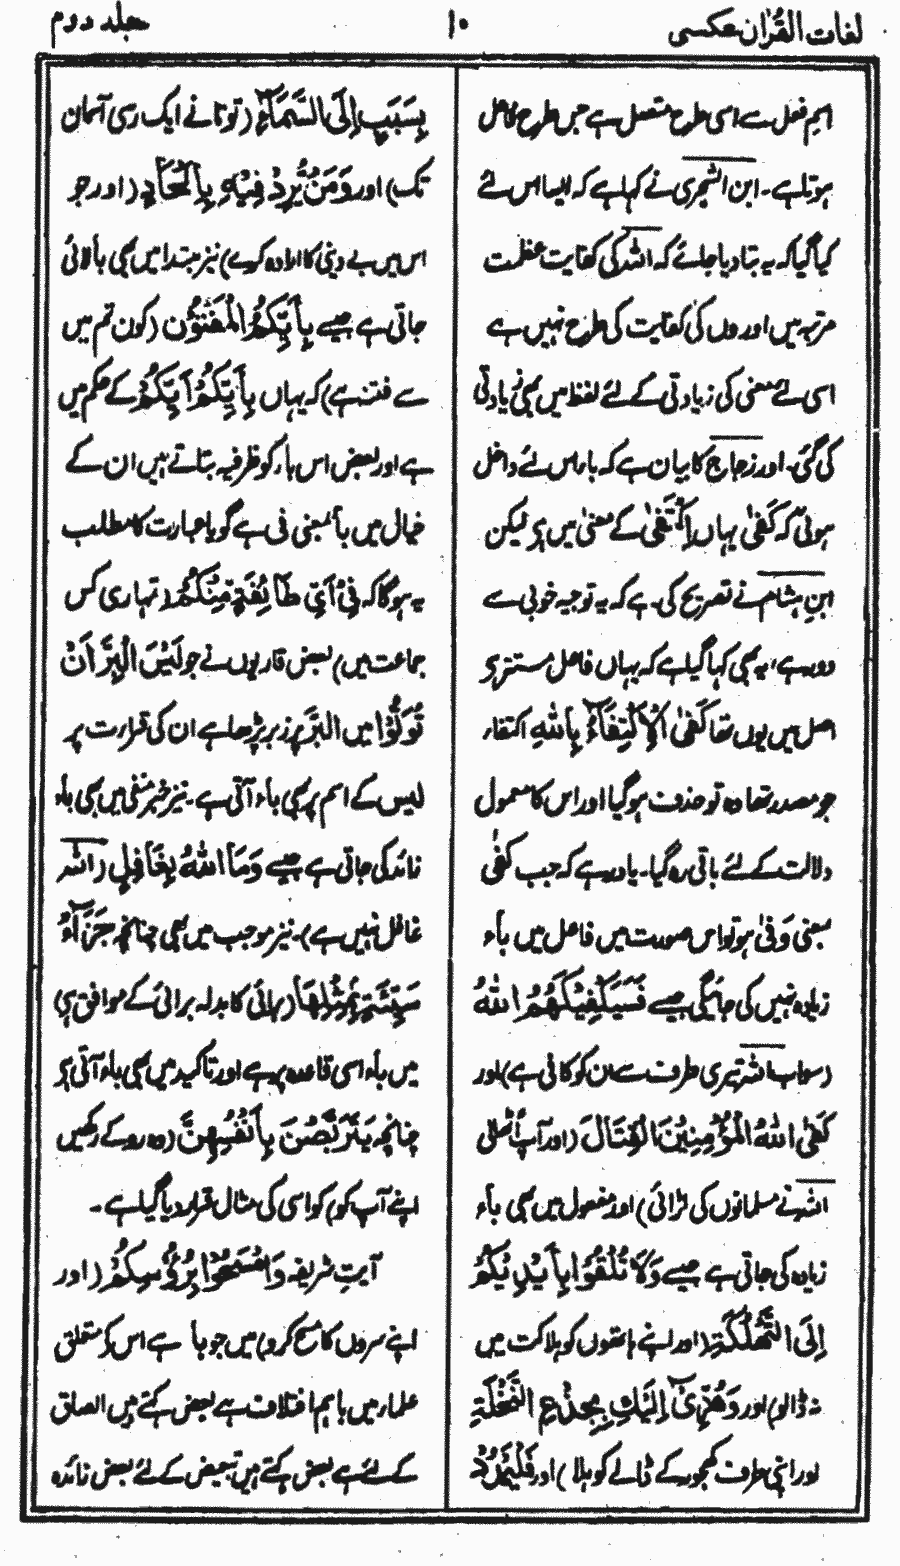 لغات القرآن عکسی
۱۰
جلد دوم
اسمِ فعل سے اسی طرح متصل ہے جس طرح فاعل
ہوتا ہے۔ ابن الشجری نے کہا ہے کہ ایسا اس لئے
کیا گیا کہ یہ بتا دیا جائے کہ اللہ کی کفایت عظمت
مرتبہ میں اوروں کی کفایت کی طرح نہیں ہے
اسی لئے معنی کی زیادتی کے لئے لفظ میں بھی زیادتی
کی گئی۔ اور زجاج کا بیان ہے کہ باء اس لئے داخل
ہوئی کہ کَفٰی یہاں اِکْتَفٰی کے معنی میں ہے لیکن
ابنِ ہشام نے تصریح کی ہے کہ یہ توجیہ خوبی سے
دور ہے، یہ بھی کہا گیا ہے کہ یہاں فاعل مستتر ہے
اصل میں یوں تھا کَفٰی الْاِکْتِفَاءُ بِاللّٰہِ اکتفاء
جو مصدر تھا وہ تو حذف ہو گیا اور اس کا معمول
دلالت کے لئے باقی رہ گیا۔ یاد رہے کہ جب کَفٰی
بمعنی وَفٰی ہو تو اس صورت میں فاعل میں باء
زیادہ نہیں کی جائیگی جیسے فَسَیَکْفِیْکَہُمُ اللّٰہُ
(سو اب اللہ تیری طرف سے ان کو کافی ہے) اور
کَفَی اللّٰہُ الْمُؤْمِنِیْنَ الْقِتَالَ (اور آپ اُٹھا لی
اللہ نے مسلمانوں کی لڑائی) اور مفعول میں بھی باء
زیادہ کی جاتی ہے جیسے وَلَا تُلْقُوْا بِاَیْدِیْکُمْ
اِلَی التَّہْلُکَۃِ (اور اپنے ہاتھوں کو ہلاکت میں
نہ ڈالو) اور وَہُزِّیْٓ اِلَیْکِ بِجِذْعِ النَّخْلَۃِ
اور اپنی طرف کھجور کے ڈالے کو ہلا) اور فَلْیَمْدُدْ
بِسَبَبٍ اِلَی السَّمَآءِ (تو تانے ایک رسی آسمان
تک) اور وَمَنْ یُّرِدْ فِیْہِ بِاِلْحَادٍ (اور جو
اس میں بے دینی کا ارادہ کرے) نیز مبتدا میں بھی باء لائی
جاتی ہے جیسے بِاَیِّکُمُ الْمَفْتُوْنُ (کون تم میں
سے فتنہ ہے) کہ یہاں بِاَیِّکُمْ اَیُّکُمْ کے حکم میں
ہے اور بعض اس باء کو ظرفیہ بتاتے ہیں ان کے
خیال میں باء بمعنی فی ہے گویا عبارت کا مطلب
یہ ہو گا کہ فِیْ اَیِّ طَائِفَۃٍ مِّنْکُمْ (تمہاری کس
جماعت میں) بعض قاریوں نے جو لَیْسَ الْبِرَّ اَنْ
تُوَلُّوْا میں البَرَّ پر زبر پڑھا ہے ان کی قراءت پر
لیس کے اسم پر بھی باء آتی ہے۔ نیز خبر منفی میں بھی باء
زائد کی جاتی ہے جیسے وَمَا اللّٰہُ بِغَافِلٍ (اللہ
غافل نہیں ہے)۔ نیز موجب میں بھی چنانچہ جَزَآءُ
سَیِّئَۃٍ بِمِثْلِہَا (برائی کا بدلہ برائی کے موافق ہے)
میں باء اسی قاعدہ پر ہے اور تاکید میں بھی باء آتی ہے
چنانچہ یَتَرَبَّصْنَ بِاَنْفُسِہِنَّ (وہ روکے رکھیں
اپنے آپ کو) کو اسی کی مثال قرار دیا گیا ہے ۔
آیتِ شریفہ وَامْسَحُوْا بِرُءُوْسِکُمْ (اور
اپنے سروں کا مسح کرو) میں جو با ہے اس کے متعلق
علماء میں باہم اختلاف ہے بعض کہتے ہیں الصاق
کے لئے ہے بعض کہتے ہیں تبعیض کے لئے بعض زائدہ